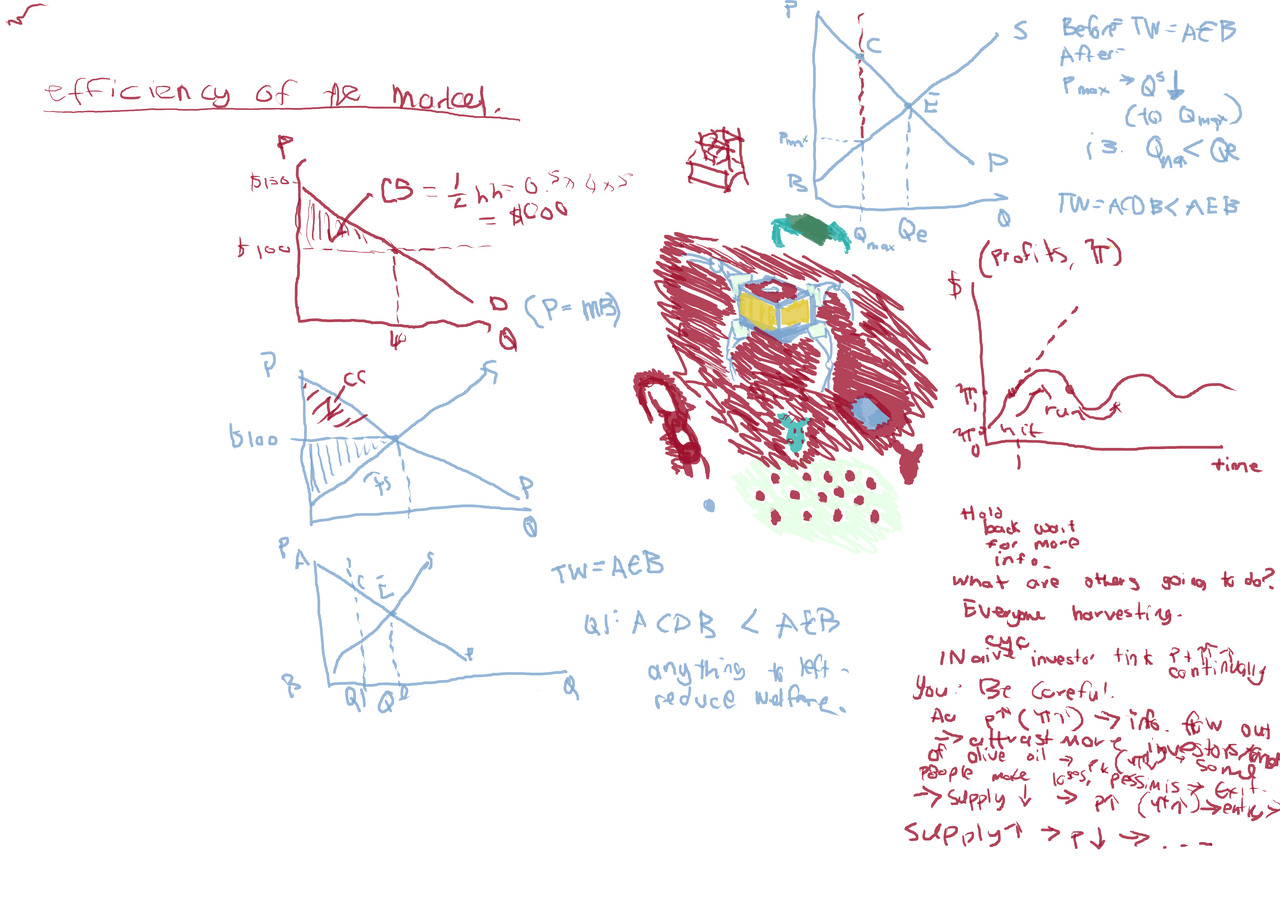 efficiency of the market.
P
$150
CS = 1/2 hh = 0.5 x 4 x 5
= $000
$100
D
(P = MB)
40
Q
P
CS
S
$100
PS
D
Q
P A
C
E
S
B
Q1
Q
TW = AEB
Q1: ACDB < AEB
anything to left -
reduce welfare.
P
S
C
E
Pmax
B
D
Qmax
Qe
Q
Before TW = AEB
After -
Pmax → Qs ↓
(to Qmax)
Qmax < Qe
TW = ACDB < AEB
(profits, π)
$
π1
π0
0
hit
run
time
Hold
back wait
for more
info.
what are others going to do?
Everyone harvesting.
cyc
Naive investor tink P + ↑↑↑
continually
You: Be careful.
As P↑ (π↑) → info. flow out
→ attrast more investors
of olive oil → P↓ (π↓) → some
people make loses, pessimis → Exit.
→ supply ↓ → P↑ (π↑) → entry →
Supply ↑ → P ↓ → . . . -